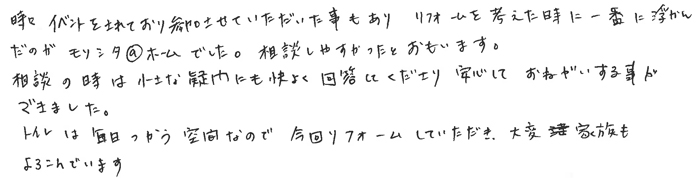 時々イベントをされており参加させていただいた事もあり リフォームを考えた時に一番に浮かん
だのが モリシタ@ホームでした。相談しやすかったとおもいます。
相談の時は小さな疑問にも快よく回答してくださり 安心して おねがいする事が
できました。
トイレは毎日つかう空間なので 今回リフォームしていただき、大変 家族も
よろこんでいます